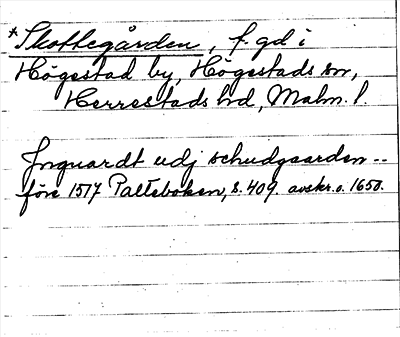 *Skottegården, f. gd i
Högestad by, Högestads sn,
Herrestads hd, Malm. l.
Jnguardt udj schudgaarden --
före 1517 Palteboken, s. 409. avskr. o. 1650.